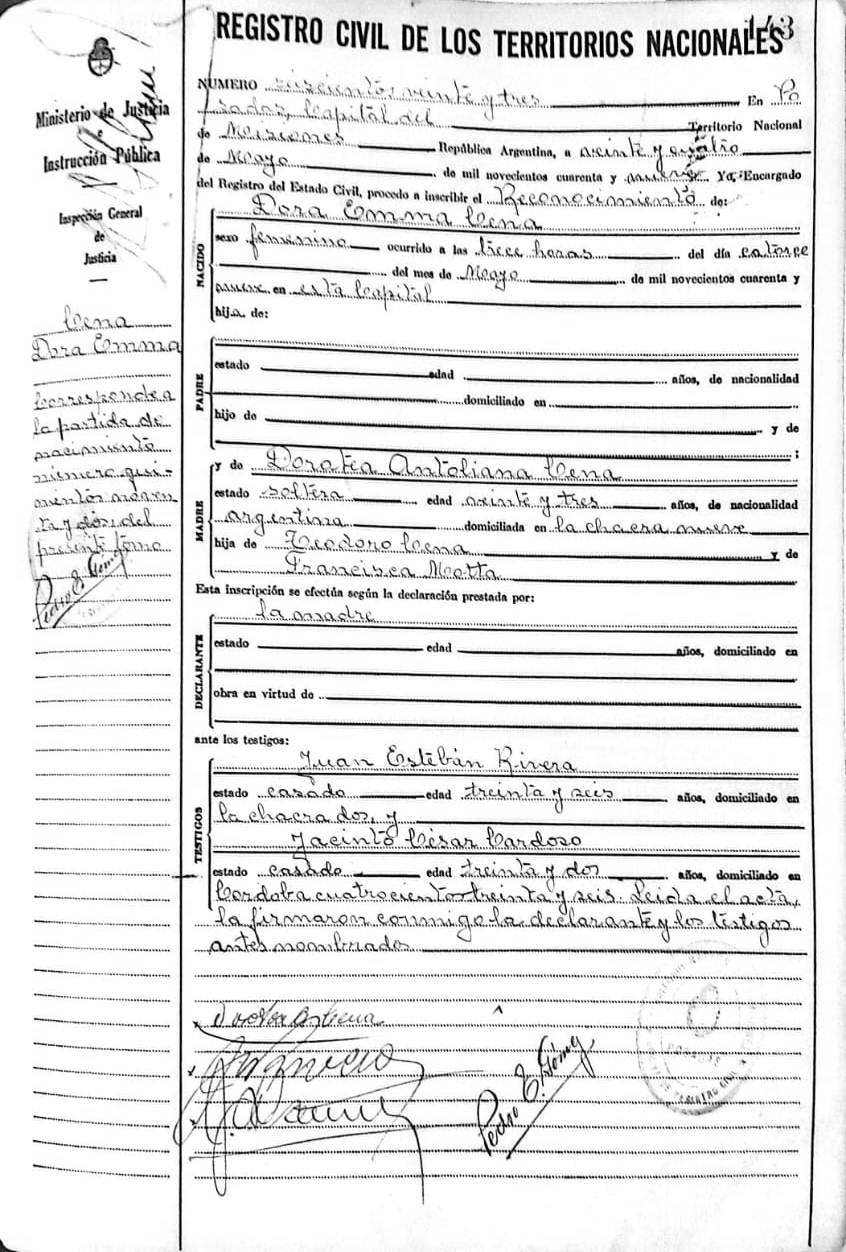 143
REGISTRO CIVIL DE LOS TERRITORIOS NACIONALES
Ministerio de Justicia
e
Instrucción Pública
Inspección General
de
Justicia
Cena
Dora Emma
Corresponde a
la partida de
nacimiento
número
del
presente tomo
Pedro E. Gómez
NUMERO seiscientos veinte y tres En Po
sadas, Capital del Territorio Nacional
de Misiones República Argentina, a veinte y cuatro
de Mayo de mil novecientos cuarenta y nueve Yo, Encargado
del Registro del Estado Civil, procedo a inscribir el Reconocimiento de:
Dora Emma Cena
NACIDO
sexo femenino ocurrido a las trece horas del día catorce
del mes de Mayo de mil novecientos cuarenta y
nueve en esta Capital
hija de:
PADRE
estado edad años, de nacionalidad
domiciliado en
hijo de y de
;
MADRE
y de Doratea Antoliana Cena
estado soltera edad veinte y tres años, de nacionalidad
argentina domiciliada en la chacra nueve
hija de Teodoro Cena y de
Francisca Motta
Esta inscripción se efectúa según la declaración prestada por:
la madre
DECLARANTE
estado edad años, domiciliado en
obra en virtud de
ante los testigos:
Juan Estebán Rivera
TESTIGOS
estado casado edad treinta y seis años, domiciliado en
la chacra dos, y
Jacinto César Cardozo
estado casado edad treinta y dos años, domiciliado en
Cordoba cuatrocientos treinta y seis. Leida el acta,
la firmaron conmigo la declarante y los testigos
antes nombrados
Pedro E. Gómez